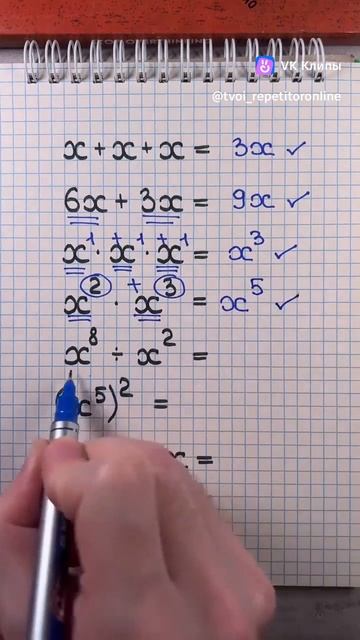 VK Клипы
@tvoi_repetitoronline
x + x + x = 3x ✓
6x + 3x = 9x ✓
x¹ · x¹ · x¹ = x³ ✓
+ +
x² · x³ = x⁵ ✓
+
x⁸ ÷ x² =
x⁵)² =
x =